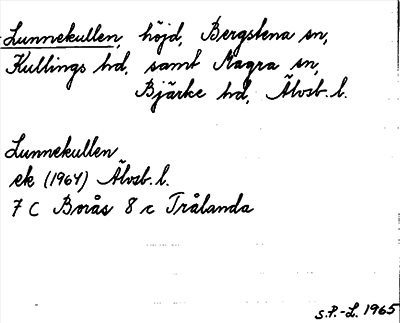 Lunnekullen, höjd, Bergstena sn,
Kullings hd, samt Magra sn,
Bjärke hd, Älvsb. l.
Lunnekullen
ek (1964) Älvsb. l.
7 C Borås 8 c Trålanda
S.P.-L. 1965